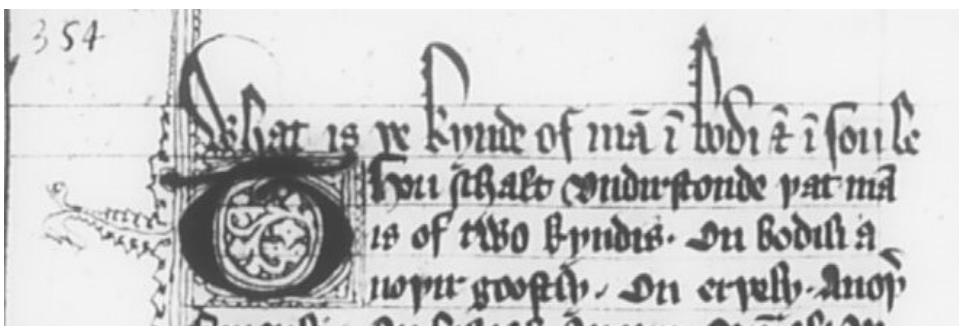 354
What is þe kynde of mā ī bodi ⁊ ī soule
Thou schalt vndirstonde þat mā
is of two kyndis. On bodili a
noþir goostly. On erþely. Anoþ̉